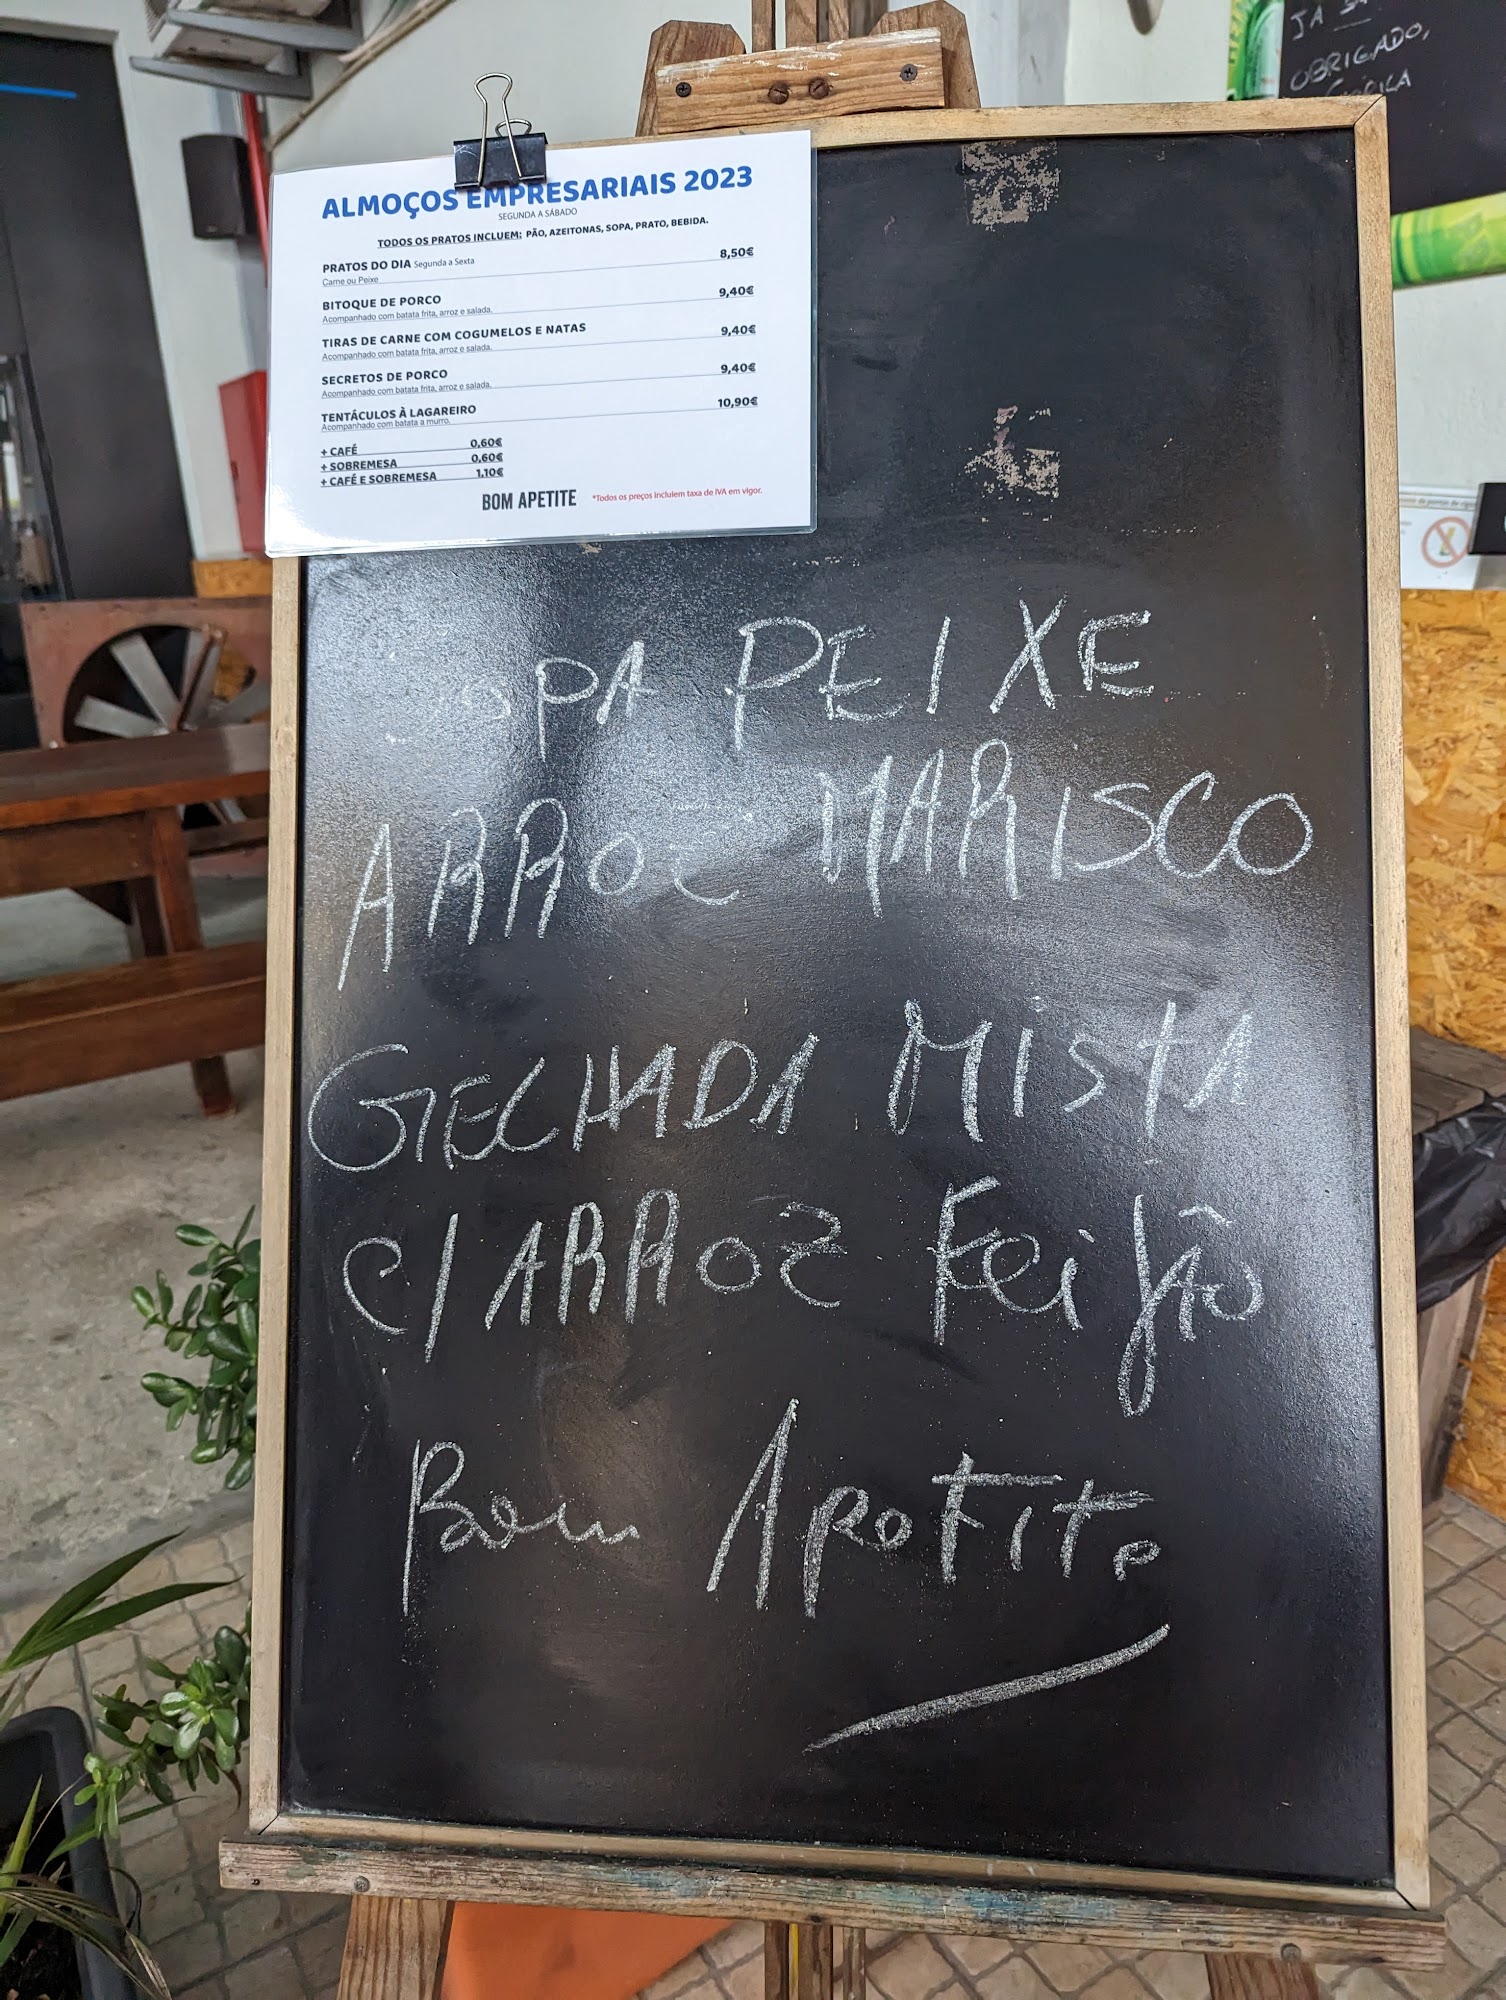 ALMOÇOS EMPRESARIAIS 2023
SEGUNDA A SÁBADO
TODOS OS PRATOS INCLUEM: PÃO, AZEITONAS, SOPA, PRATO, BEBIDA.
PRATOS DO DIA Segunda a Sexta 8,50€
Carne ou Peixe
BITOQUE DE PORCO 9,40€
Acompanhado com batata frita, arroz e salada.
TIRAS DE CARNE COM COGUMELOS E NATAS 9,40€
Acompanhado com batata frita, arroz e salada.
SECRETOS DE PORCO 9,40€
Acompanhado com batata frita, arroz e salada.
TENTÁCULOS À LAGAREIRO 10,90€
Acompanhado com batata a murro.
+ CAFÉ 0,60€
+ SOBREMESA 0,60€
+ CAFÉ E SOBREMESA 1,10€
BOM APETITE *Todos os preços incluem taxa de IVA em vigor.
SOPA PEIXE
ARROZ MARISCO
GRELHADA MISTA
C/ ARROZ FEIJÃO
Bom APETITE
JA
OBRIGADO,